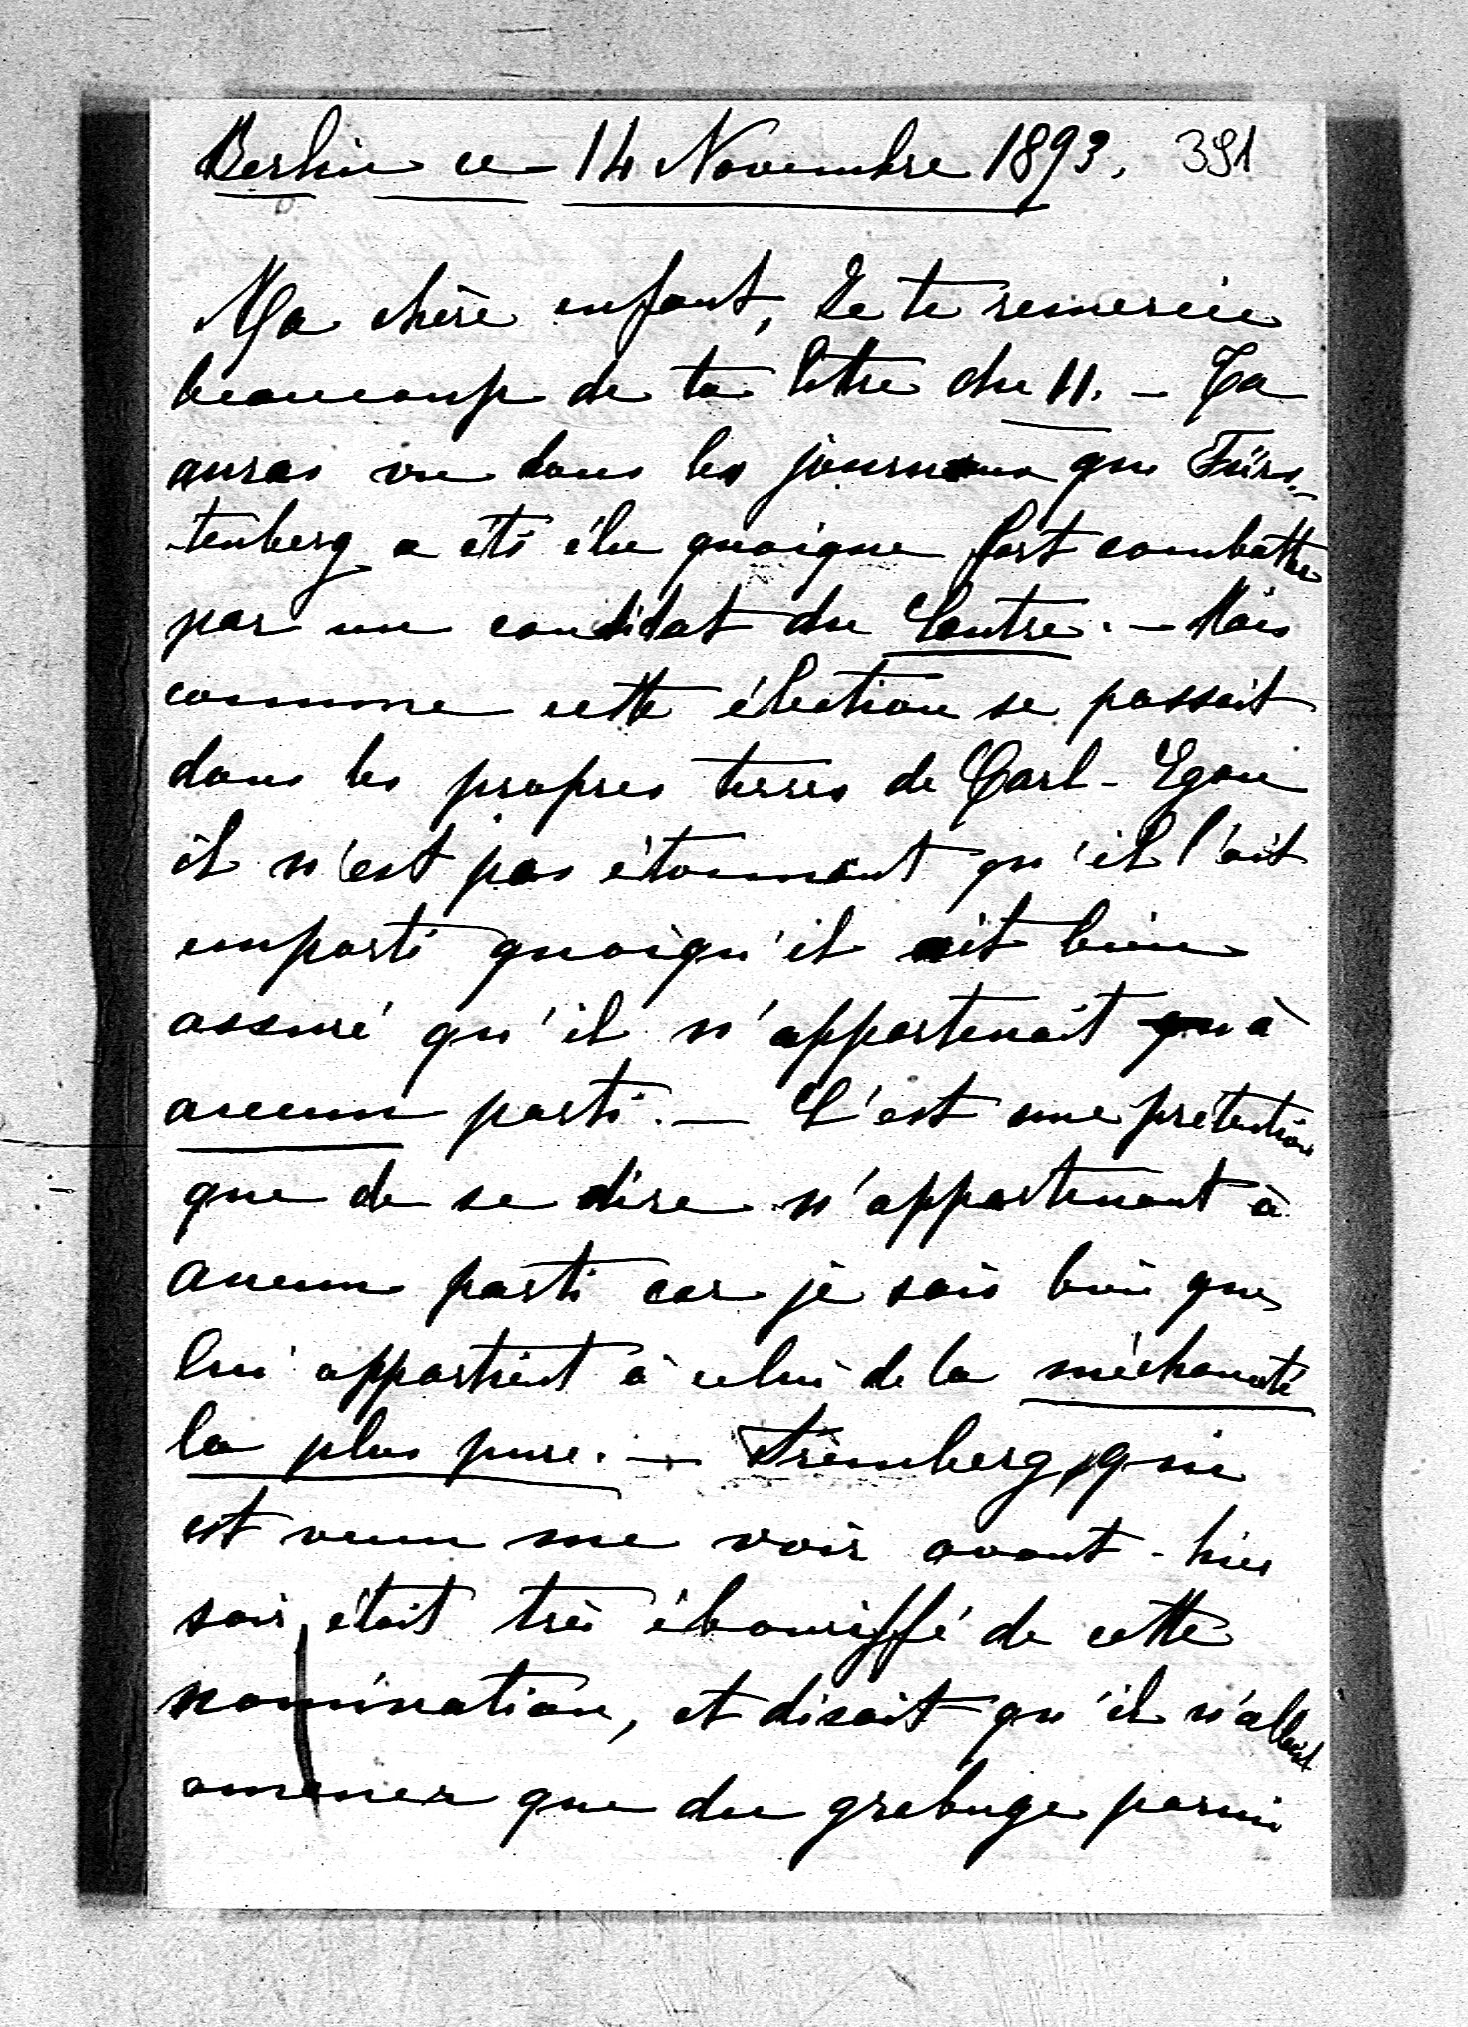 Berlin ce 14 Novembre 1893. 391
Ma chère enfant, Je te remercie
beaucoup de ta lettre du 11. — Tu
auras vu dans les journaux que Fürs-
-tenberg a été élu quoique fort combattu
par un candidat du Centre. — Mais
comme cette élection se passait
dans les propres terres de Carl-Egon
il n'est pas étonnant qu'il l'ait
emporté quoiqu'il ait bien
assuré qu'il n'appartenait qu'à
aucun parti. — C'est une prétention
que de se dire n'appartenant à
aucun parti car je sais bien que
lui appartient à celui de la méchanceté
la plus pure. — Tremberg, qui
est venu me voir avant-hier
soir, était très ébouriffé de cette
nomination, et disait qu'il n'allait
amener que du grabuge parmi